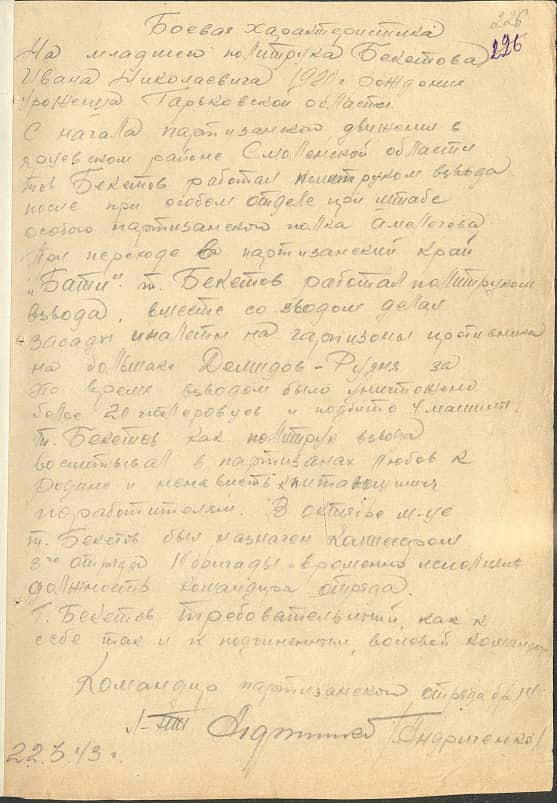 226
Боевая характеристика
226
На младшего политрука Бекетова
Ивана Николаевича рождения
Уроженца Горьковской области.
С начала партизанского движения в
районе Смоленской области
тов Бекетов работал политруком взвода
после при особом отделе при штабе
особого партизанского полка
При переходе в партизанский край
"Бати". т. Бекетов работал политруком
взвода, вместе со зводом делал
засады и налеты на гарнизоны противника
на большаке Демидов-Рудня за
это время взводом было уничтожено
более 20 гитлеровцев и подбито 4 машины.
т. Бекетов как политрук взвода
воспитывал в партизанах любовь к
Родине и ненависть к
поработителям. В октябре м-це
т. Бекетов был назначен Комиссаром
3го отряда бригады временно исполнял
должность командира отряда.
Т. Бекетов требовательный, как к
себе так и к подчиненным, волевой командир
Командир партизанского отряда
Андриченко
22.3.43 г.